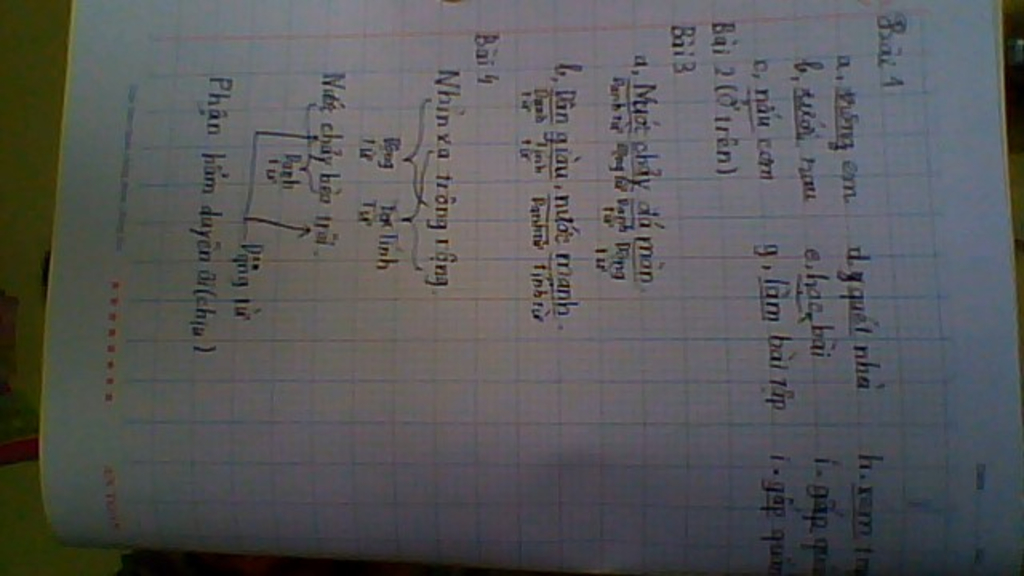 Bài 1
a, trông em d, quét nhà h. xem
b, tưới rau e, học bài i. gấp
c, nấu cơm g, làm bài tập i. gấp quần
Bài 2 (Ở trên)
Bài 3
a, Nước chảy đá mòn.
Danh từ Động từ Danh từ Động từ
b, Dân giàu, nước mạnh.
Danh từ Tính từ Danh từ Tính từ
Bài 4
Nhìn xa trông rộng.
Động từ Tính từ
Nước chảy bèo trôi.
Danh từ
Động từ
Phận hẩm duyên ôi (chịu)